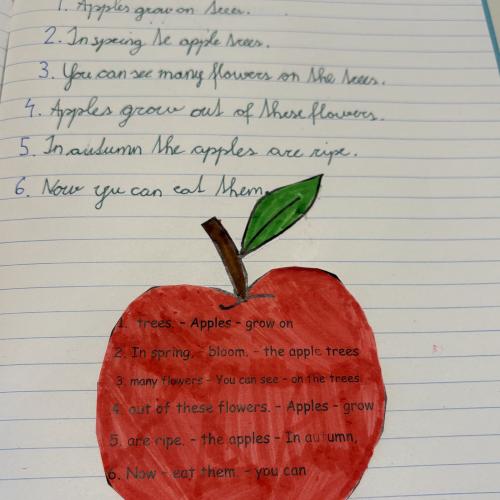 1. Apples grow on trees.
2. In spring te apple trees.
3. You can see many flowers on the trees.
4. Apples grow out of these flowers.
5. In autumn the apples are ripe.
6. Now you can eat them.
1. trees. - Apples - grow on
2. In spring, - bloom. - the apple trees
3. many flowers - You can see - on the trees.
4. out of these flowers. - Apples - grow
5. are ripe. - the apples - In autumn,
6. Now - eat them. - you can